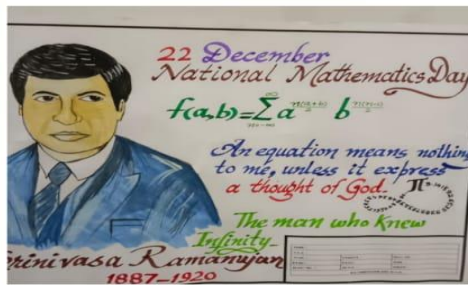 22 December
National Mathematics Day
f(a,b)=∑ a b
An equation means nothin
to me, unless it express
a thought of God. π
The man who Knew
Infinity
Srinivasa Ramanujan
1887-1920